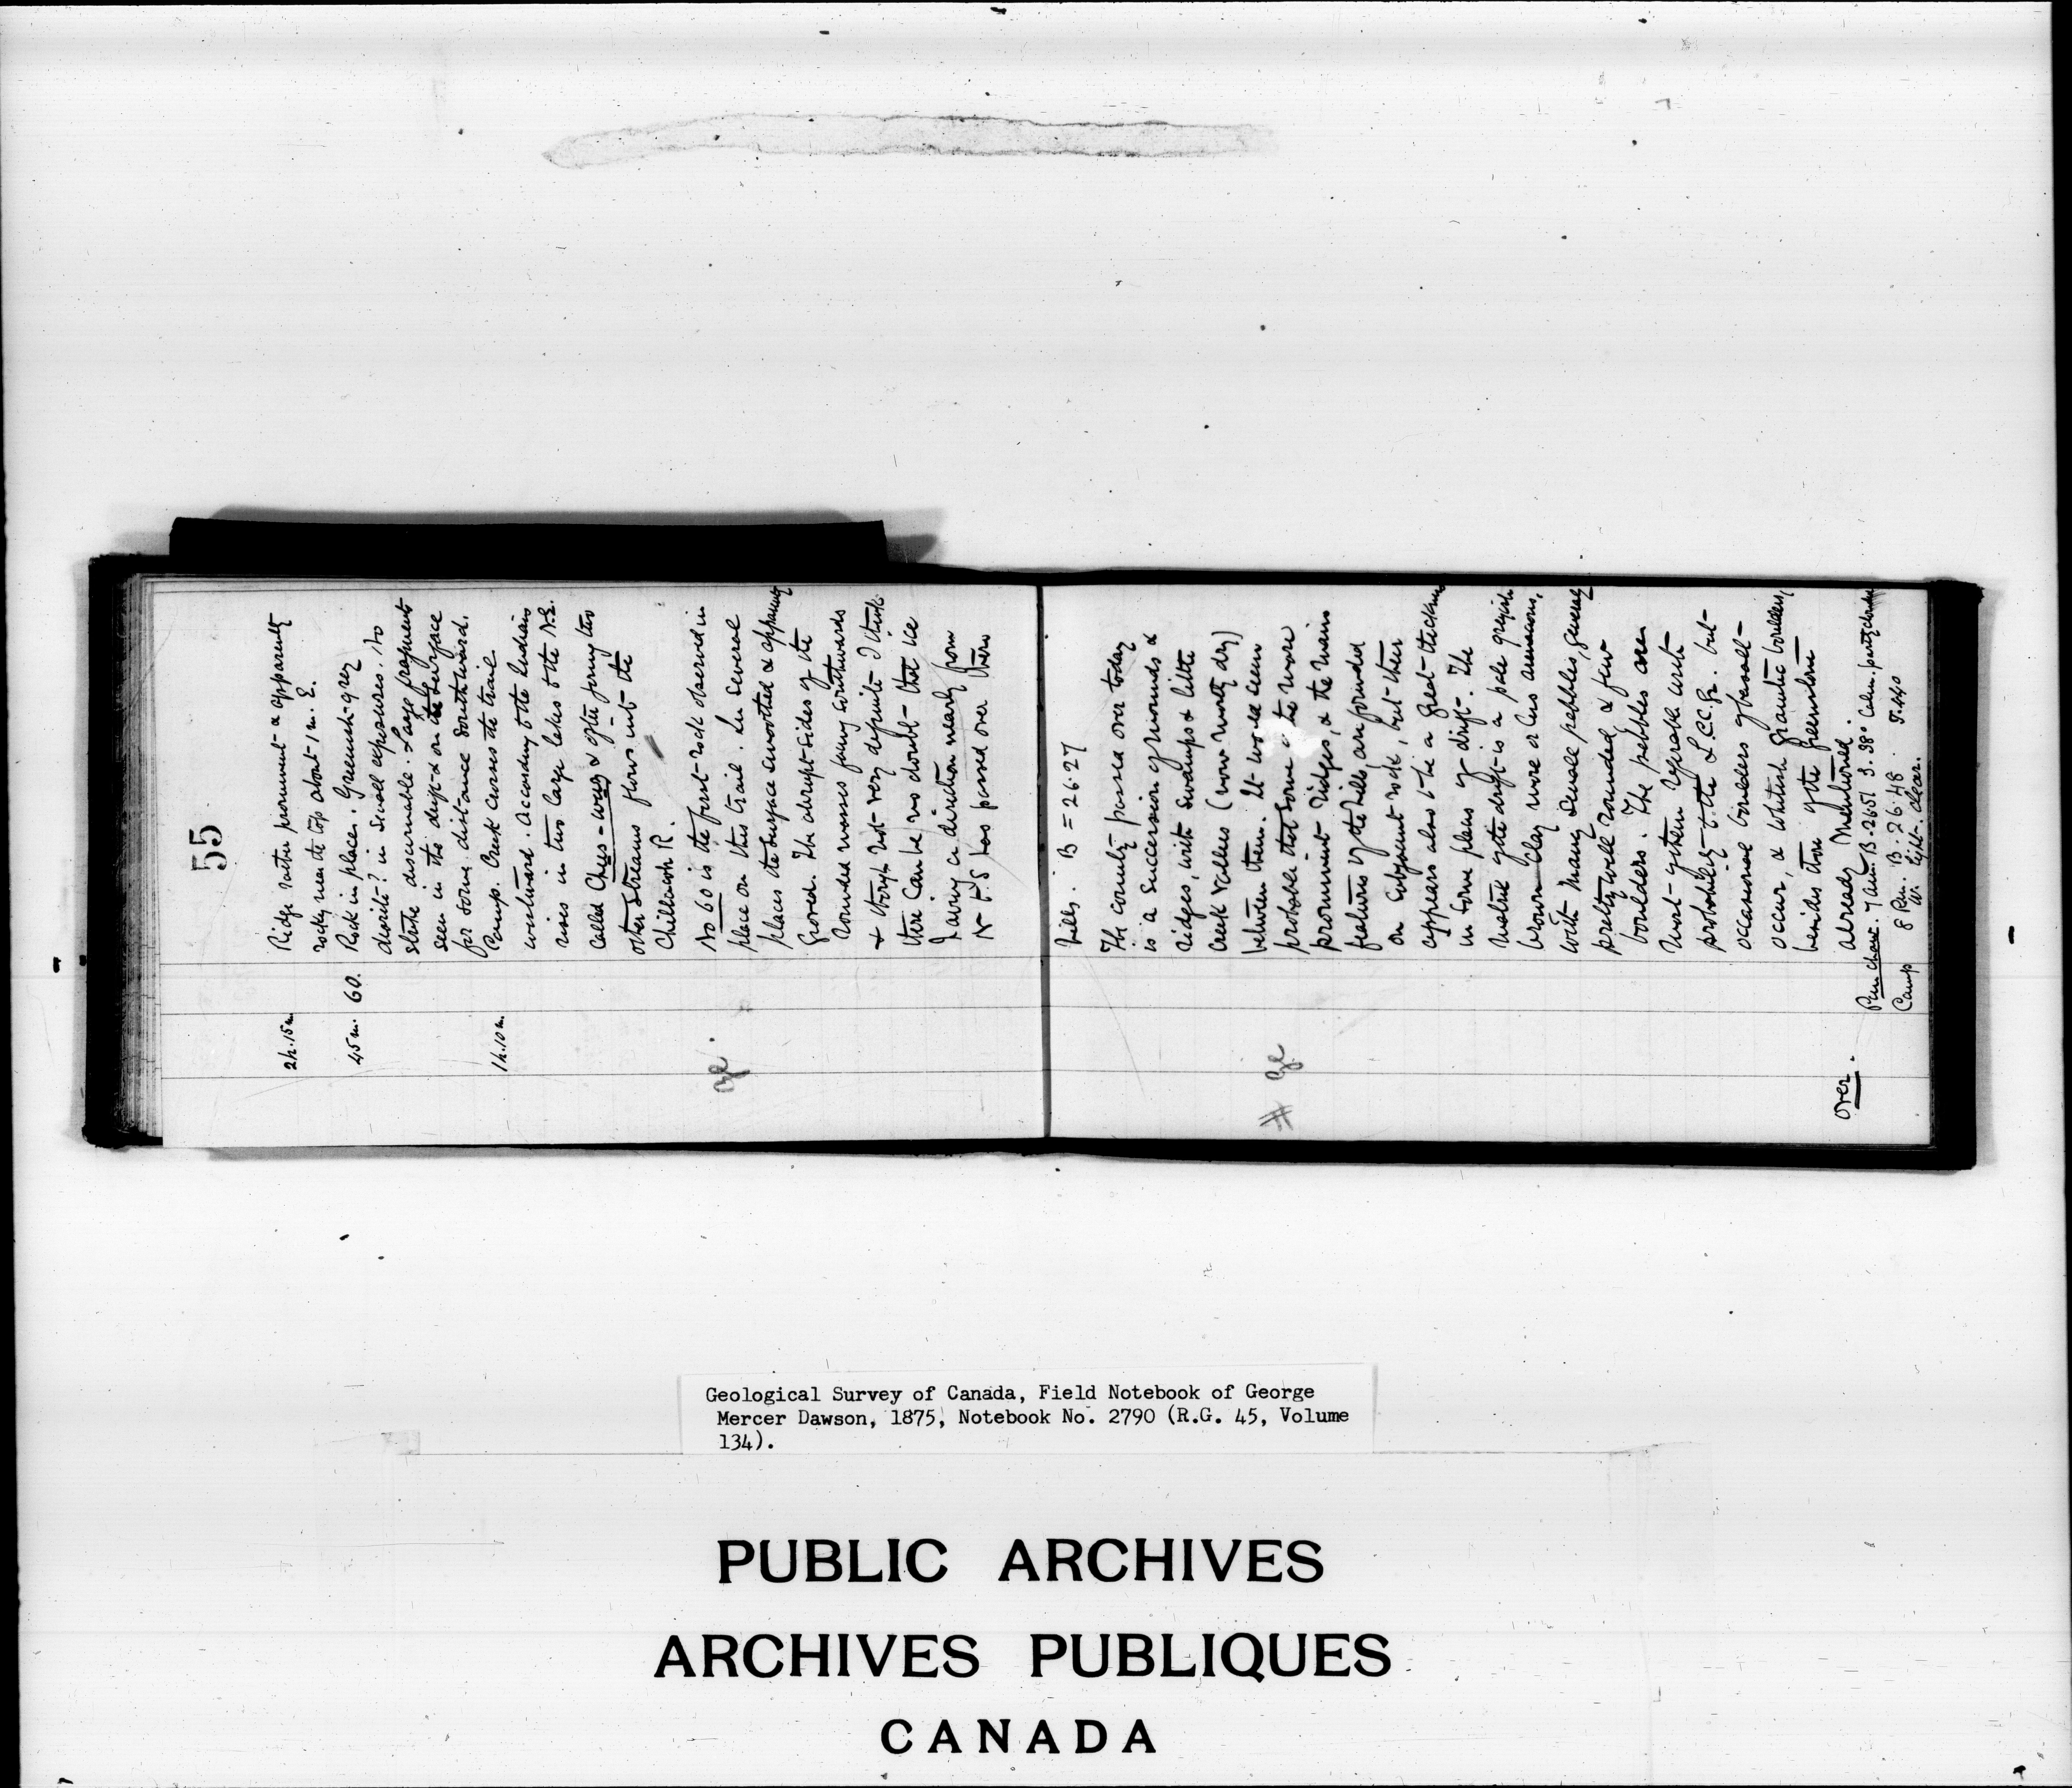 55
2h.15m. Ridge rather prominent & apparently
rocky near the top about 1 m. E.
45m. 60. Rock in place. Greenish-grey
diorite? in small exposures. No
strike discernable. Large fragments
seen in the drift & on the surface
for some distance southward.
1h.10m. Camp. Creek crosses the trail
westward. According to the Indians
rises in two large lakes to the N.E.
called Ches-was & after joining two
other streams flows into the
Chillacoh R.
No 60 is the first rock observed in
place on this trail. In several
places the surface smoothed & apparently
Grooved. The abrupt sides of the
rounded masses facing southwards
& though not very definite I think
there can be no doubt that ice
having a direction nearly from
N to S has passed over them
Gl.
Hills. B = 26.27
The country passed over today
is a succession of mounds &
ridges, with swamps & little
creek vallies (now mostly dry)
between them. It would seem
probable that some of the more
prominent ridges, & the main
features of the hills are founded
on subjacent rock, but there
appears also to be a great thickness
in some places of drift. The
matrix of the drift is a pale greyish
brown clay more or less arenaceous,
with many small pebbles, generally
pretty well rounded & few
boulders. The pebbles are
most of them referable with
probability to the L.C.C.Gr. but
occasional boulders of basalt
occur, & whitish granitic boulders,
besides those of the greenstone
already mentioned.
Gl
#
7 am. B. 26.51 S. 38° Calm. partly cloudy
Camp 8 P.m. B. 26.48 S. 440
W. light. clear.
over.
Geological Survey of Canada, Field Notebook of George
Mercer Dawson, 1875, Notebook No. 2790 (R.G. 45, Volume
134).
PUBLIC ARCHIVES
ARCHIVES PUBLIQUES
CANADA